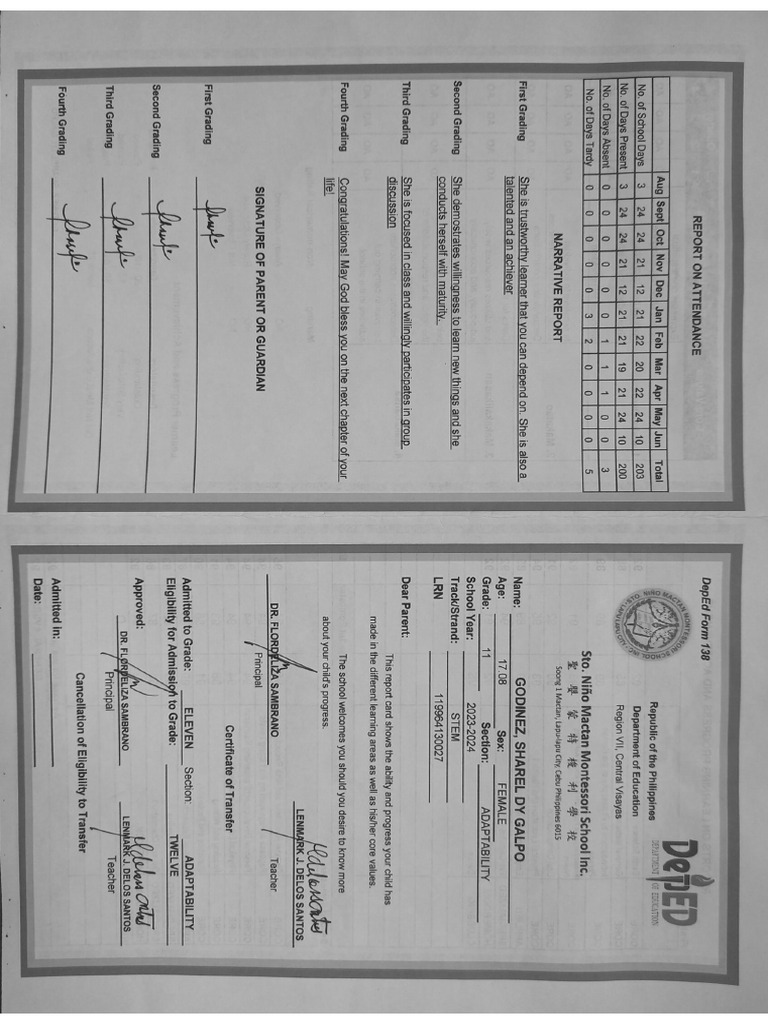 REPORT ON ATTENDANCE
Aug Sept Oct Nov Dec Jan Feb Mar Apr May Jun Total
No. of School Days 3 24 24 21 12 21 22 20 22 24 10 203
No. of Days Present 3 24 24 21 12 21 21 19 21 24 10 200
No. of Days Absent 0 0 0 0 0 0 1 1 1 0 0 3
No. of Days Tardy 0 0 0 0 0 3 2 0 0 0 0 5
NARRATIVE REPORT
First Grading She is trustworthy learner that you can depend on. She is also a
talented and an achiever
Second Grading She demostrates willingness to learn new things and she
conducts herself with maturity.
Third Grading She is focused in class and willingly participates in group
discussion
Fourth Grading Congratulations! May God bless you on the next chapter of your
life!
SIGNATURE OF PARENT OR GUARDIAN
First Grading
Second Grading
Third Grading
Fourth Grading
DepEd Form 138
Republic of the Philippines
Department of Education
Region VII, Central Visayas
DepED
DEPARTMENT OF EDUCATION
STO. NIÑO MACTAN MONTESSORI SCHOOL, INC.
Sto. Niño Mactan Montessori School Inc.
聖 蒙 特 利 學 校
Soong 1 Mactan, Lapu-lapu City, Cebu Philippines 6015
Name: GODINEZ, SHAREL DY GALPO
Age: 17.08 Sex: FEMALE
Grade: 11 Section: ADAPTABILITY
School Year: 2023-2024
Track/Strand: STEM
LRN 119964130027
Dear Parent:
This report card shows the ability and progress your child has
made in the different learning areas as well as his/her core values.
The school welcomes you should you desire to know more
about your child's progress.
DR. FLORDELIZA SAMBRANO LENMARK J. DELOS SANTOS
Principal Teacher
Certificate of Transfer
Admitted to Grade: ELEVEN Section: ADAPTABILITY
Eligibility for Admission to Grade: TWELVE
Approved:
DR. FLORDELIZA SAMBRANO LENMARK J. DELOS SANTOS
Principal Teacher
Cancellation of Eligibility to Transfer
Admitted In:
Date: